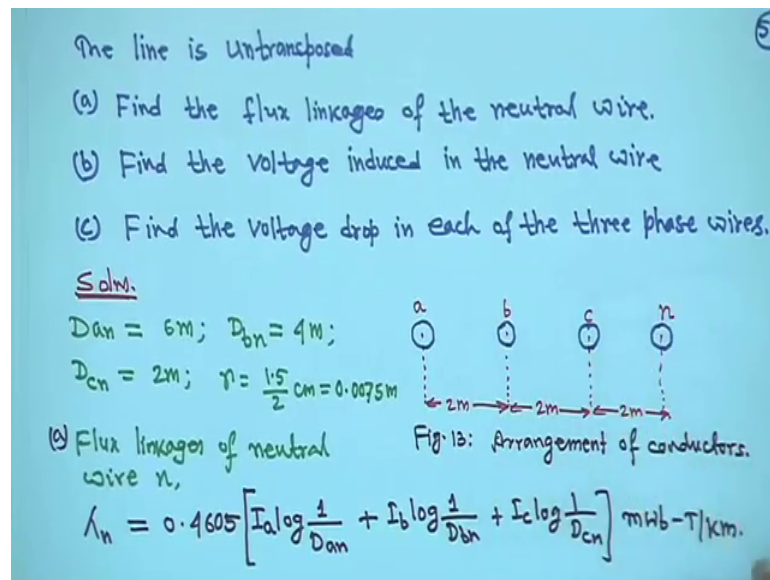 5
The line is untransposed
(a) Find the flux linkages of the neutral wire.
(b) Find the voltage induced in the neutral wire
(c) Find the voltage drop in each of the three phase wires.
Soln.
Dan = 6m; Dbn = 4m;
Dcn = 2m; r = 1.5/2 cm = 0.0075m
a b c n
2m 2m 2m
Fig. 13: Arrangement of conductors.
(a) Flux linkages of neutral
wire n,
λn = 0.4605 [Ia log 1/Dan + Ib log 1/Dbn + Ic log 1/Dcn] mwb-T/km.